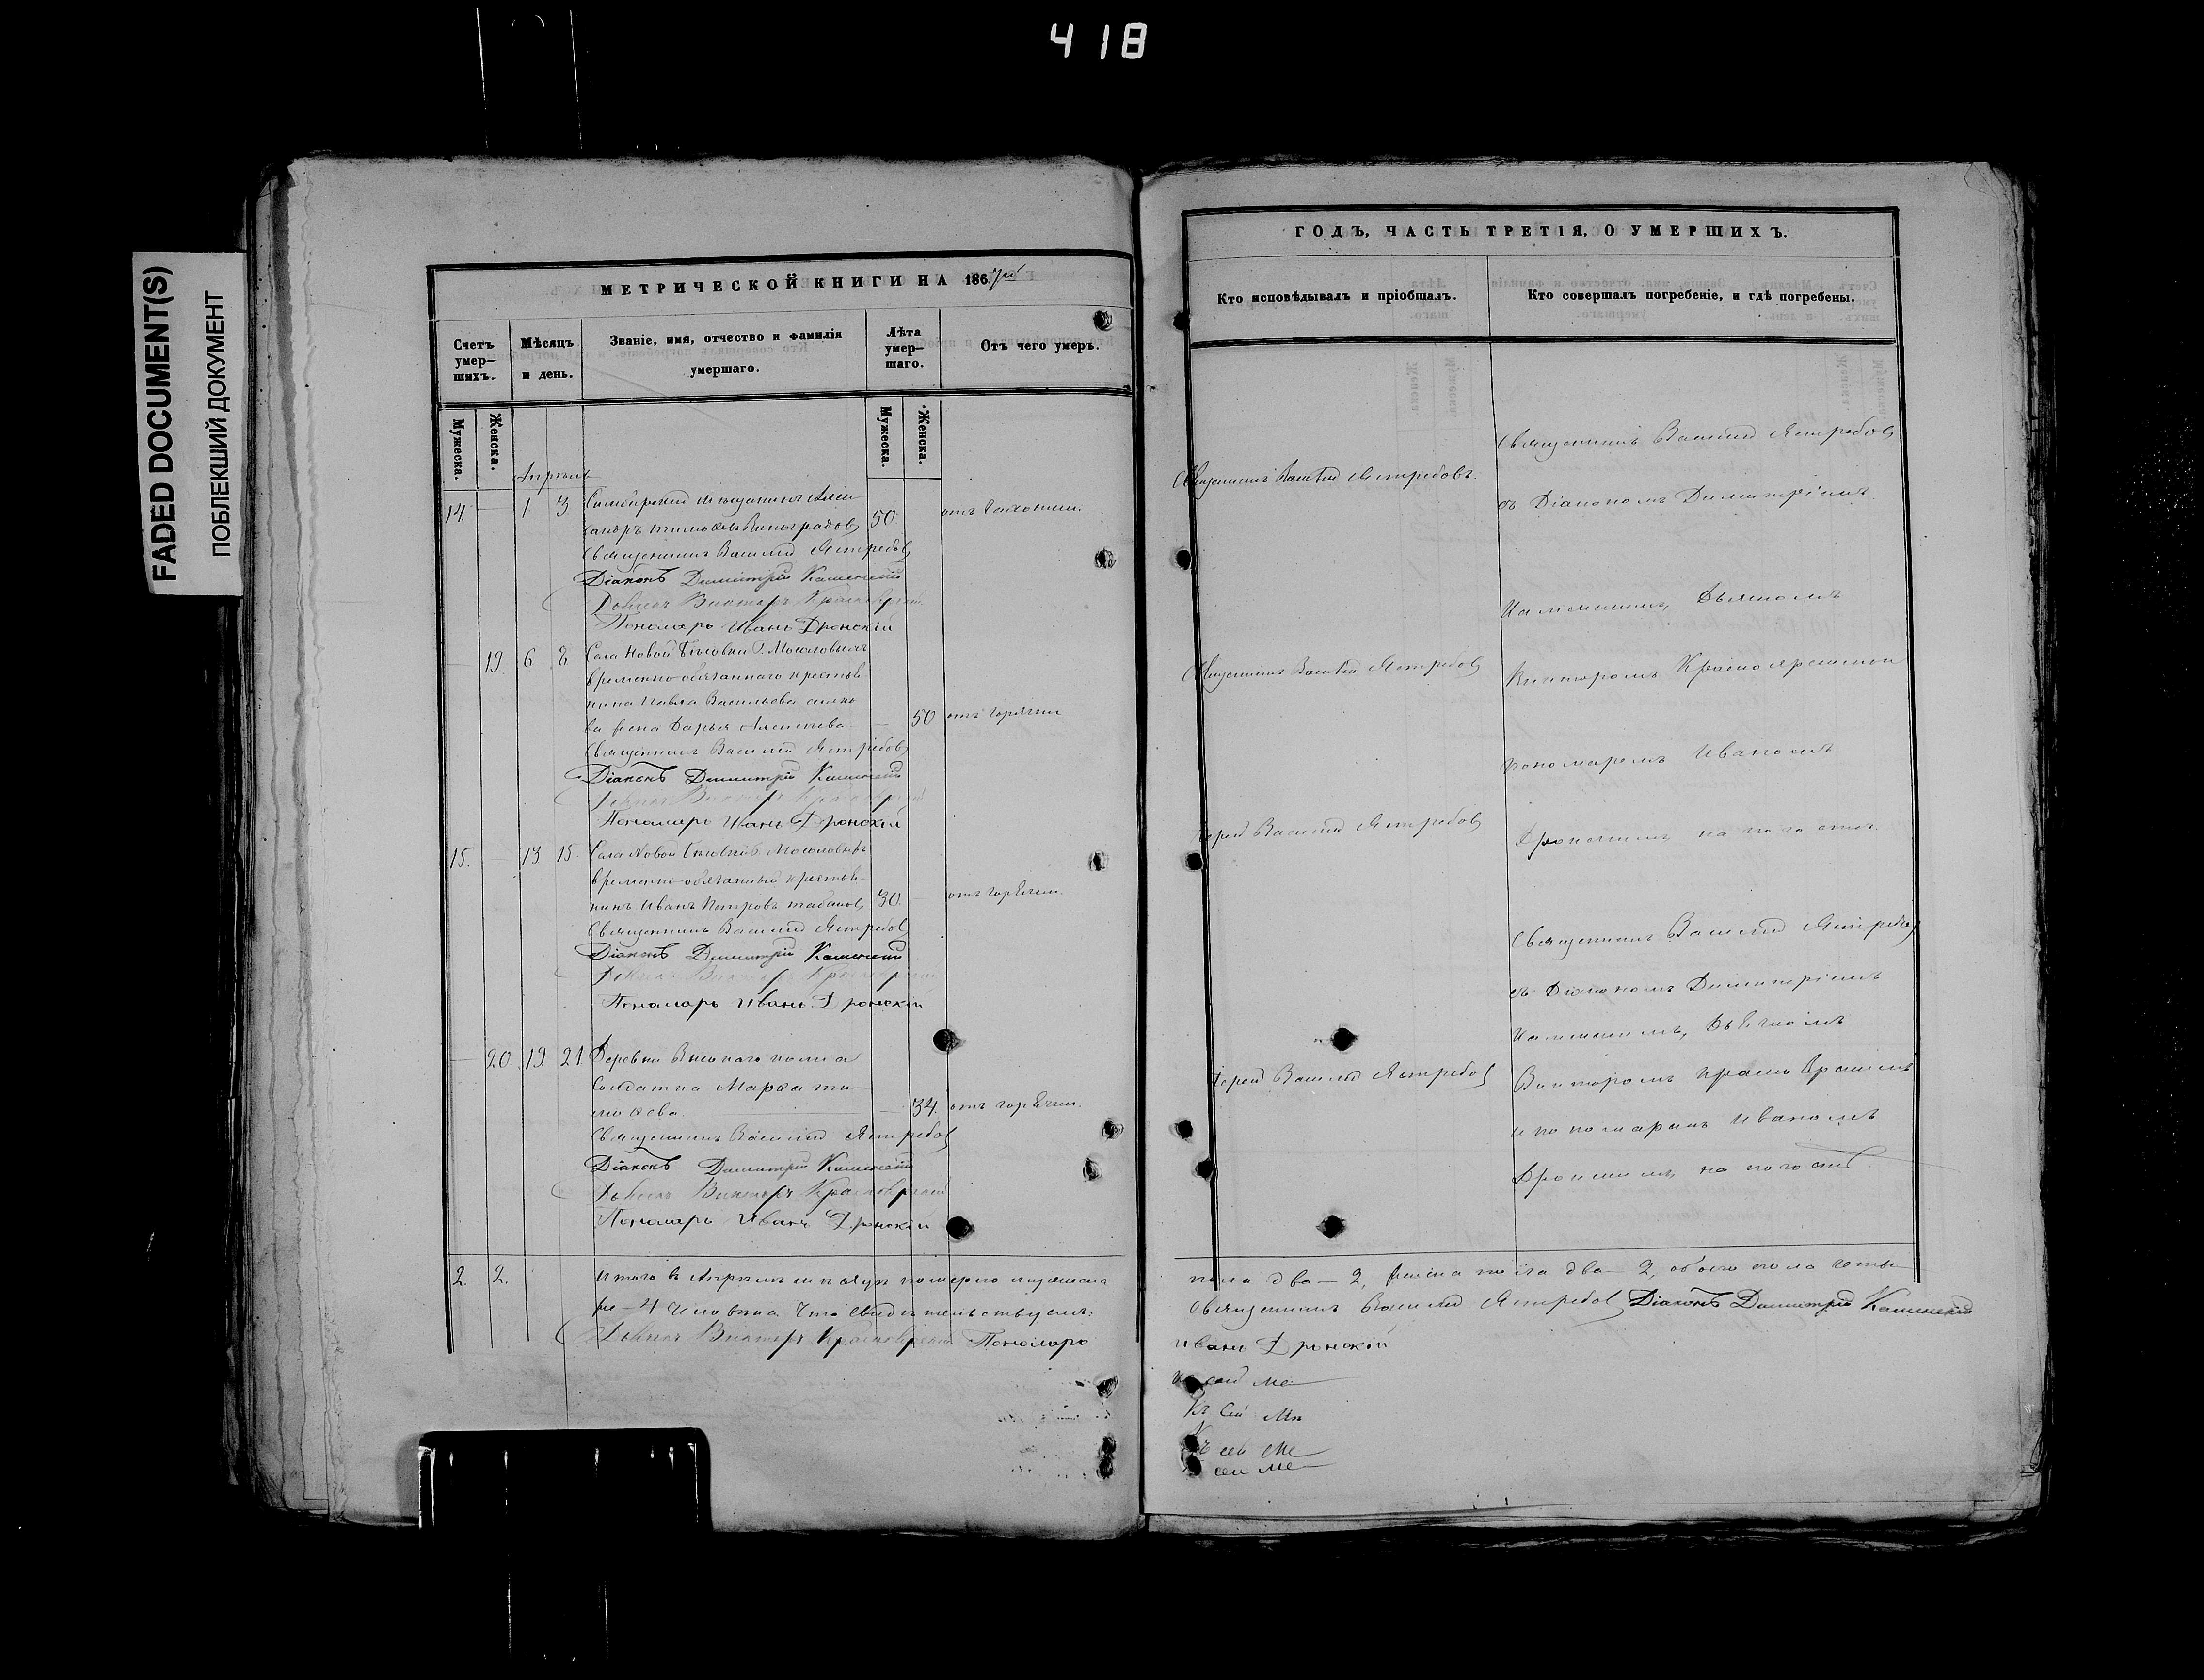 418
FADED DOCUMENT(S)
ПОБЛЕКШИЙ ДОКУМЕНТ
МЕТРИЧЕСКОЙ КНИГИ НА 1867й
Счетъ умер—шихъ.
Мѣсяцъ и день.
Званіе, имя, отчество и фамилія умершаго.
Лѣта умер—шаго.
Отъ чего умеръ.
Мужеска.
Женска.
Мужеска.
Женска.
Апрѣль
14. — 1 3 Симбирскій мѣщанинъ Алек
сандръ Тимоѳеевъ Виноградовъ 50.
Священникъ Василій Ястребовъ
Діаконъ Димитрій Каменскій
Дьячекъ Викторъ Красноярскій
Пономарь Иванъ Дронскій
— 19. 6 8 Села Новой Бѣковки Г. Мосоловыхъ
временно-обязаннаго крестья
нина Павла Васильева
ва жена Дарья Алексѣева — 50 отъ горячки
Священникъ Василій Ястребовъ
Діаконъ Димитрій Каменскій
Дьячекъ Викторъ Красноярскій
Пономарь Иванъ Дронскій
15. — 13 15 Села Новой Бѣковки Г. Мосоловыхъ
временно-обязанный крестья-
нинъ Иванъ Петровъ Табаковъ 30. отъ горячки.
Священникъ Василій Ястребовъ
Діаконъ Димитрій Каменскій
Дьячекъ Викторъ Красноярскій
Пономарь Иванъ Дронскій
— 20. 19. 21. Деревни
Солдатка Марѳа Ти—
моѳеева. — 34. отъ горячки.
Священникъ Василій Ястребовъ
Діаконъ Димитрій Каменскій
Дьячекъ Викторъ Красноярскій
Пономарь Иванъ Дронскій
2. 2. Итого в Апрѣлѣ мѣсяцѣ померло мужеска
ре — 4 человѣка. Что свидѣтельствуемъ:
Дьячекъ Викторъ Красноярскій Пономарь
ГОДЪ, ЧАСТЬ ТРЕТІЯ, О УМЕРШИХЪ.
Кто исповѣдывалъ и пріобщалъ.
Кто совершалъ погребеніе, и гдѣ погребены.
Священникъ Василій Ястребовъ.
Священникъ Василій Ястребовъ
Іерей Василій Ястребовъ
Іерей Василій Ястребовъ
Священникъ Василій Ястребовъ
съ Діакономъ Димитріемъ
Каменскимъ, Дьячкомъ
Викторомъ Красноярскимъ
Пономаремъ Иваномъ
Дронскимъ, на погостѣ.
Священникъ Василій Ястребовъ
съ Діакономъ Димитріемъ
Каменскимъ, Дьячкомъ
Викторомъ Красноярскимъ
и пономаремъ Иваномъ
Дронскимъ, на погостѣ.
пола два — 2, женска пола два — 2, обоего пола четы—
Священникъ Василій Ястребовъ Діаконъ Димитрій Каменскій
Иванъ Дронскій
Къ сей Ме
Къ сей Ме